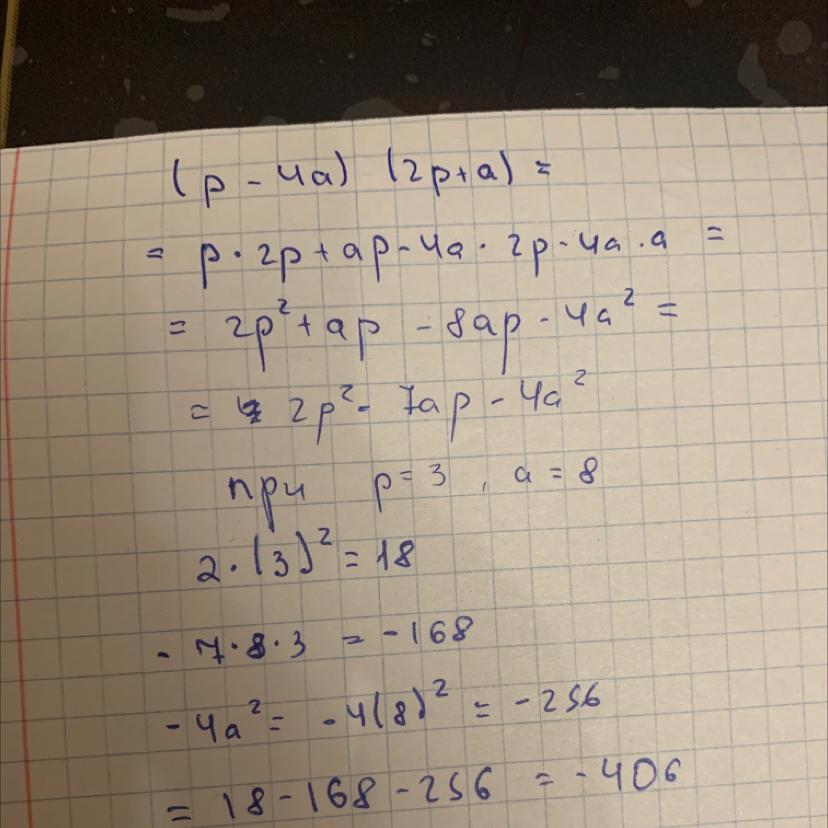 (p - 4a) (2p+a) =
= p · 2p + ap - 4a · 2p - 4a · a =
= 2p² + ap - 8ap - 4a² =
= 2p² - 7ap - 4a²
при p = 3 , a = 8
2 · (3)² = 18
- 7 · 8 · 3 = -168
- 4a² = - 4(8)² = -256
= 18 - 168 - 256 = -406